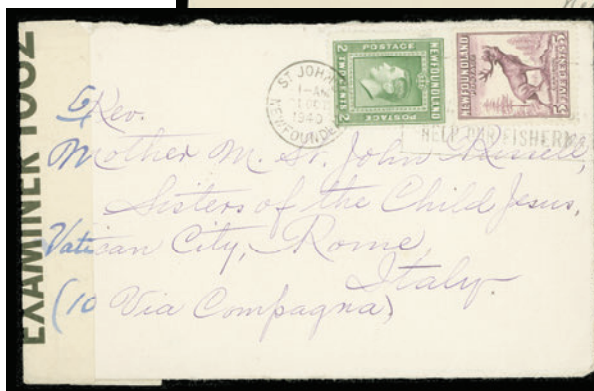 POSTAGE
NEWFOUNDLAND
2 TWO CENTS 2
POSTAGE
NEWFOUNDLAND
5
ST. JOHN'S
1-AM
1940
NEWFOUNDLAND
HELP OUR FISHERM
EXAMINER 1082
Rev.
Mother M. St. John
Sisters of the Child Jesus,
Vatican City, Rome
Italy.
(10 Via Compagna)